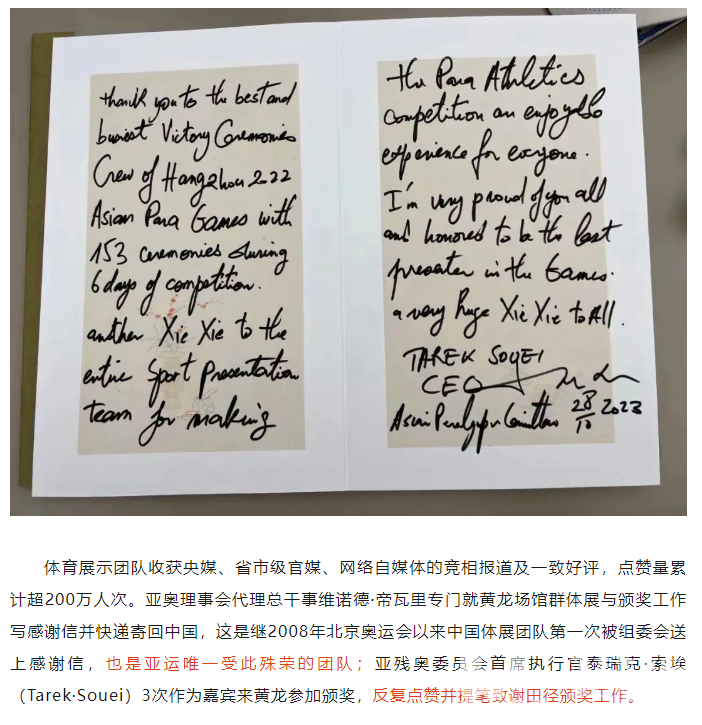 thank you to the best and
busiest Victory Ceremonies
Crew of Hangzhou 2022
Asian Para Games with
153 ceremonies during
6 days of competition.
another Xie Xie to the
entire Sport Presentation
team for making
the Para Athletics
competition an enjoyable
experience for everyone.
I'm very proud of you all
and honored to be the last
presenter in the Games.
a very huge Xie Xie to All.
TAREK SOUEI
CEO
Asian Paralympic Committee 28/10 2023
体育展示团队收获央媒、省市级官媒、网络自媒体的竞相报道及一致好评，点赞量累
计超200万人次。亚奥理事会代理总干事维诺德·帝瓦里专门就黄龙场馆群体展与颁奖工作
写感谢信并快递寄回中国，这是继2008年北京奥运会以来中国体展团队第一次被组委会送
上感谢信，也是亚运唯一受此殊荣的团队；亚残奥委员会首席执行官泰瑞克·索埃
（Tarek·Souei）3次作为嘉宾来黄龙参加颁奖，反复点赞并提笔致谢田径颁奖工作。